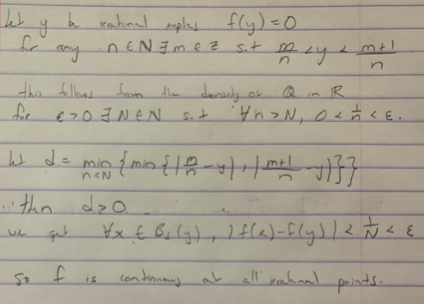 let y be irrational implies f(y) = 0
for any n ∈ N ∃ m ∈ Z s.t m/n < y < m+1/n
this follows from the density of Q in R
for ε > 0 ∃ N ∈ N s.t ∀n > N, 0 < 1/n < ε.
let d = min n<N {min {|m/n - y|, |m+1/n - y|}}
then d > 0
we get ∀x ∈ B_d(y), |f(x) - f(y)| < 1/N < ε
so f is continuous at all irrational points.